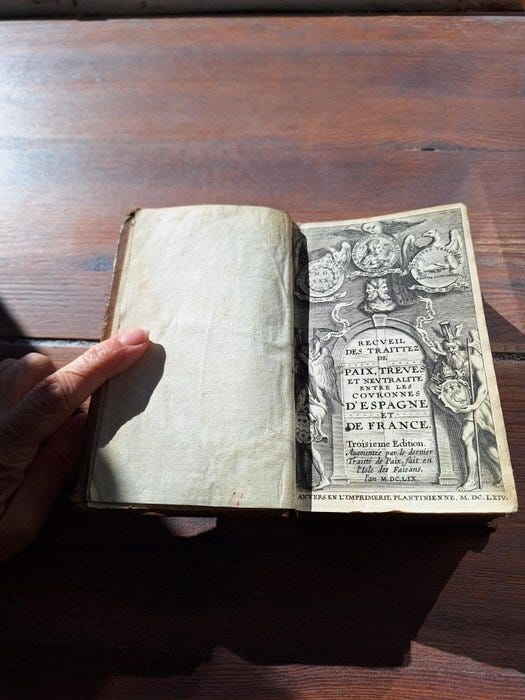 RECVEIL
DES TRAITTEZ
DE
PAIX, TREVES
ET NEVTRALITE
ENTRE LES
COVRONNES
D'ESPAGNE
ET
DE FRANCE.
Troisieme Edition.
Augmentée par le dernier
Traitté de Paix, fait en
l'Isle des Faisans,
l'an M.DC.LIX.
ANVERS EN L'IMPRIMERIE PLANTINIENNE. M. DC. LXIV.